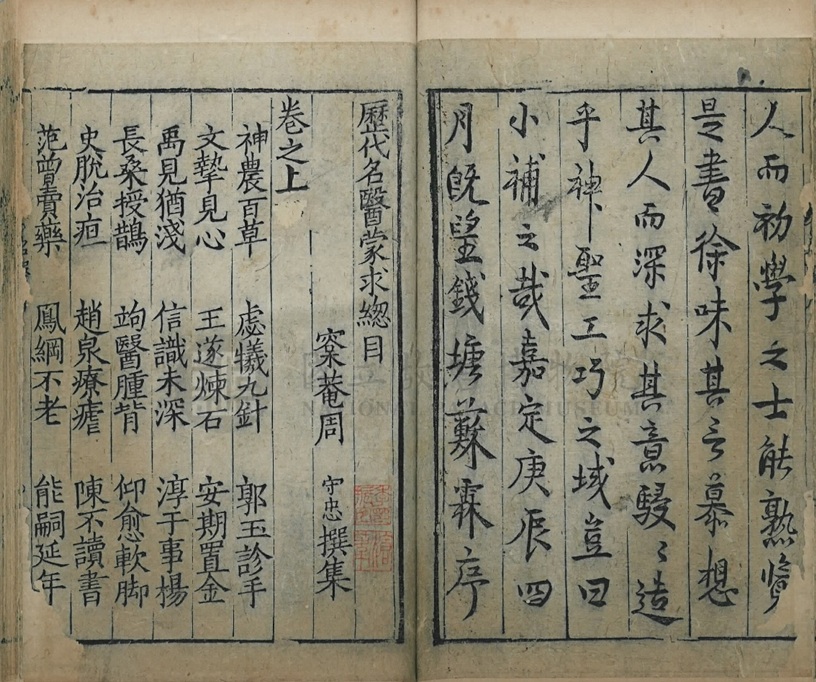 人而初學之士能熟覽
是書徐味其言慕想
其人而深求其意駸〻造
乎神聖工巧之域豈曰
小補之哉嘉定庚辰四
月旣望錢塘蘇霖序
歷代名醫蒙求緫目
㮤菴周 守忠撰集
卷之上
神農百草 虙犧九針 郭玉診手
文摯見心 王遂煉石 安期置金
禹見猶淺 信識未深 淳于事楊
長桑授鵲 竘醫腫背 仰愈軟脚
史脫治疸 趙泉療瘧 陳不讀書
范曾賣藥 鳳綱不老 能嗣延年
NATIONAL PALACE MUSEUM